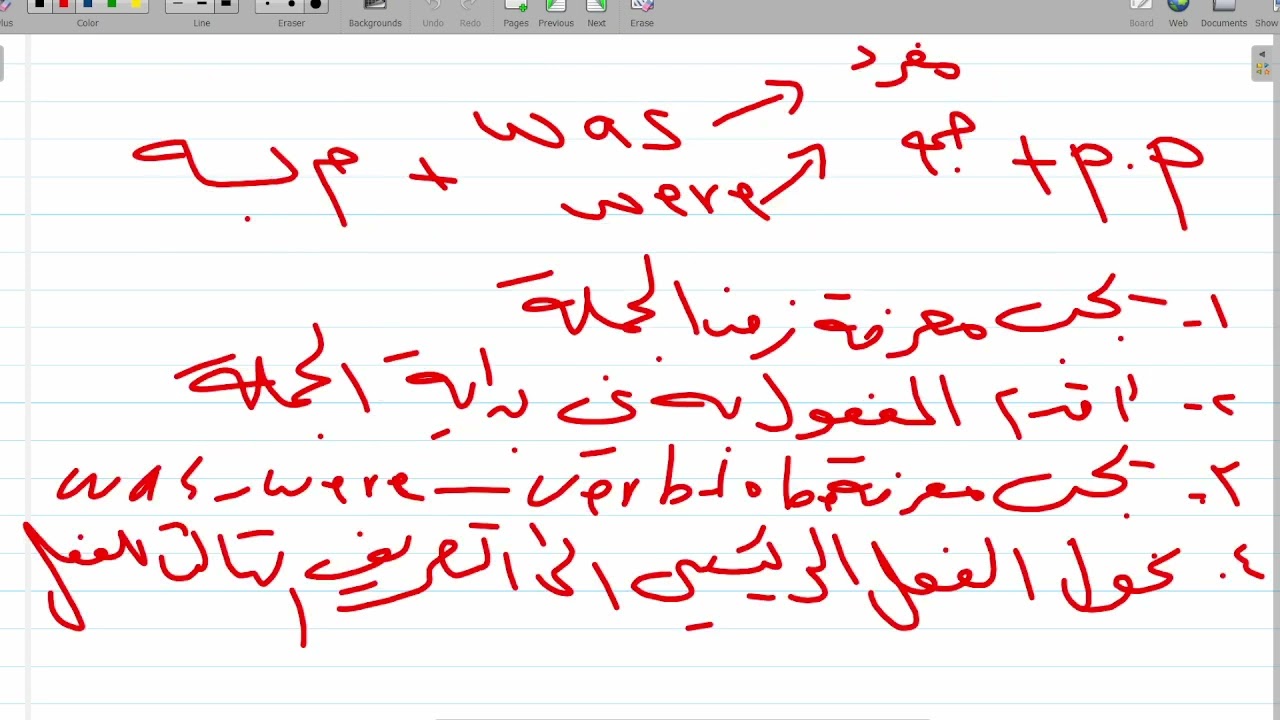 plus Color Line Eraser Backgrounds Undo Redo Pages Previous Next Erase Board Web Documents Show
مفرد
م به + was → جمع + p.p
were →
١- يجب معرفة زمن الجملة
٢- اقدم المفعول به فى بداية الجملة
٣- يجب معرفة verb to be — was - were
٤. نحول الفعل الرئيسي الى التصريف الثالث للفعل